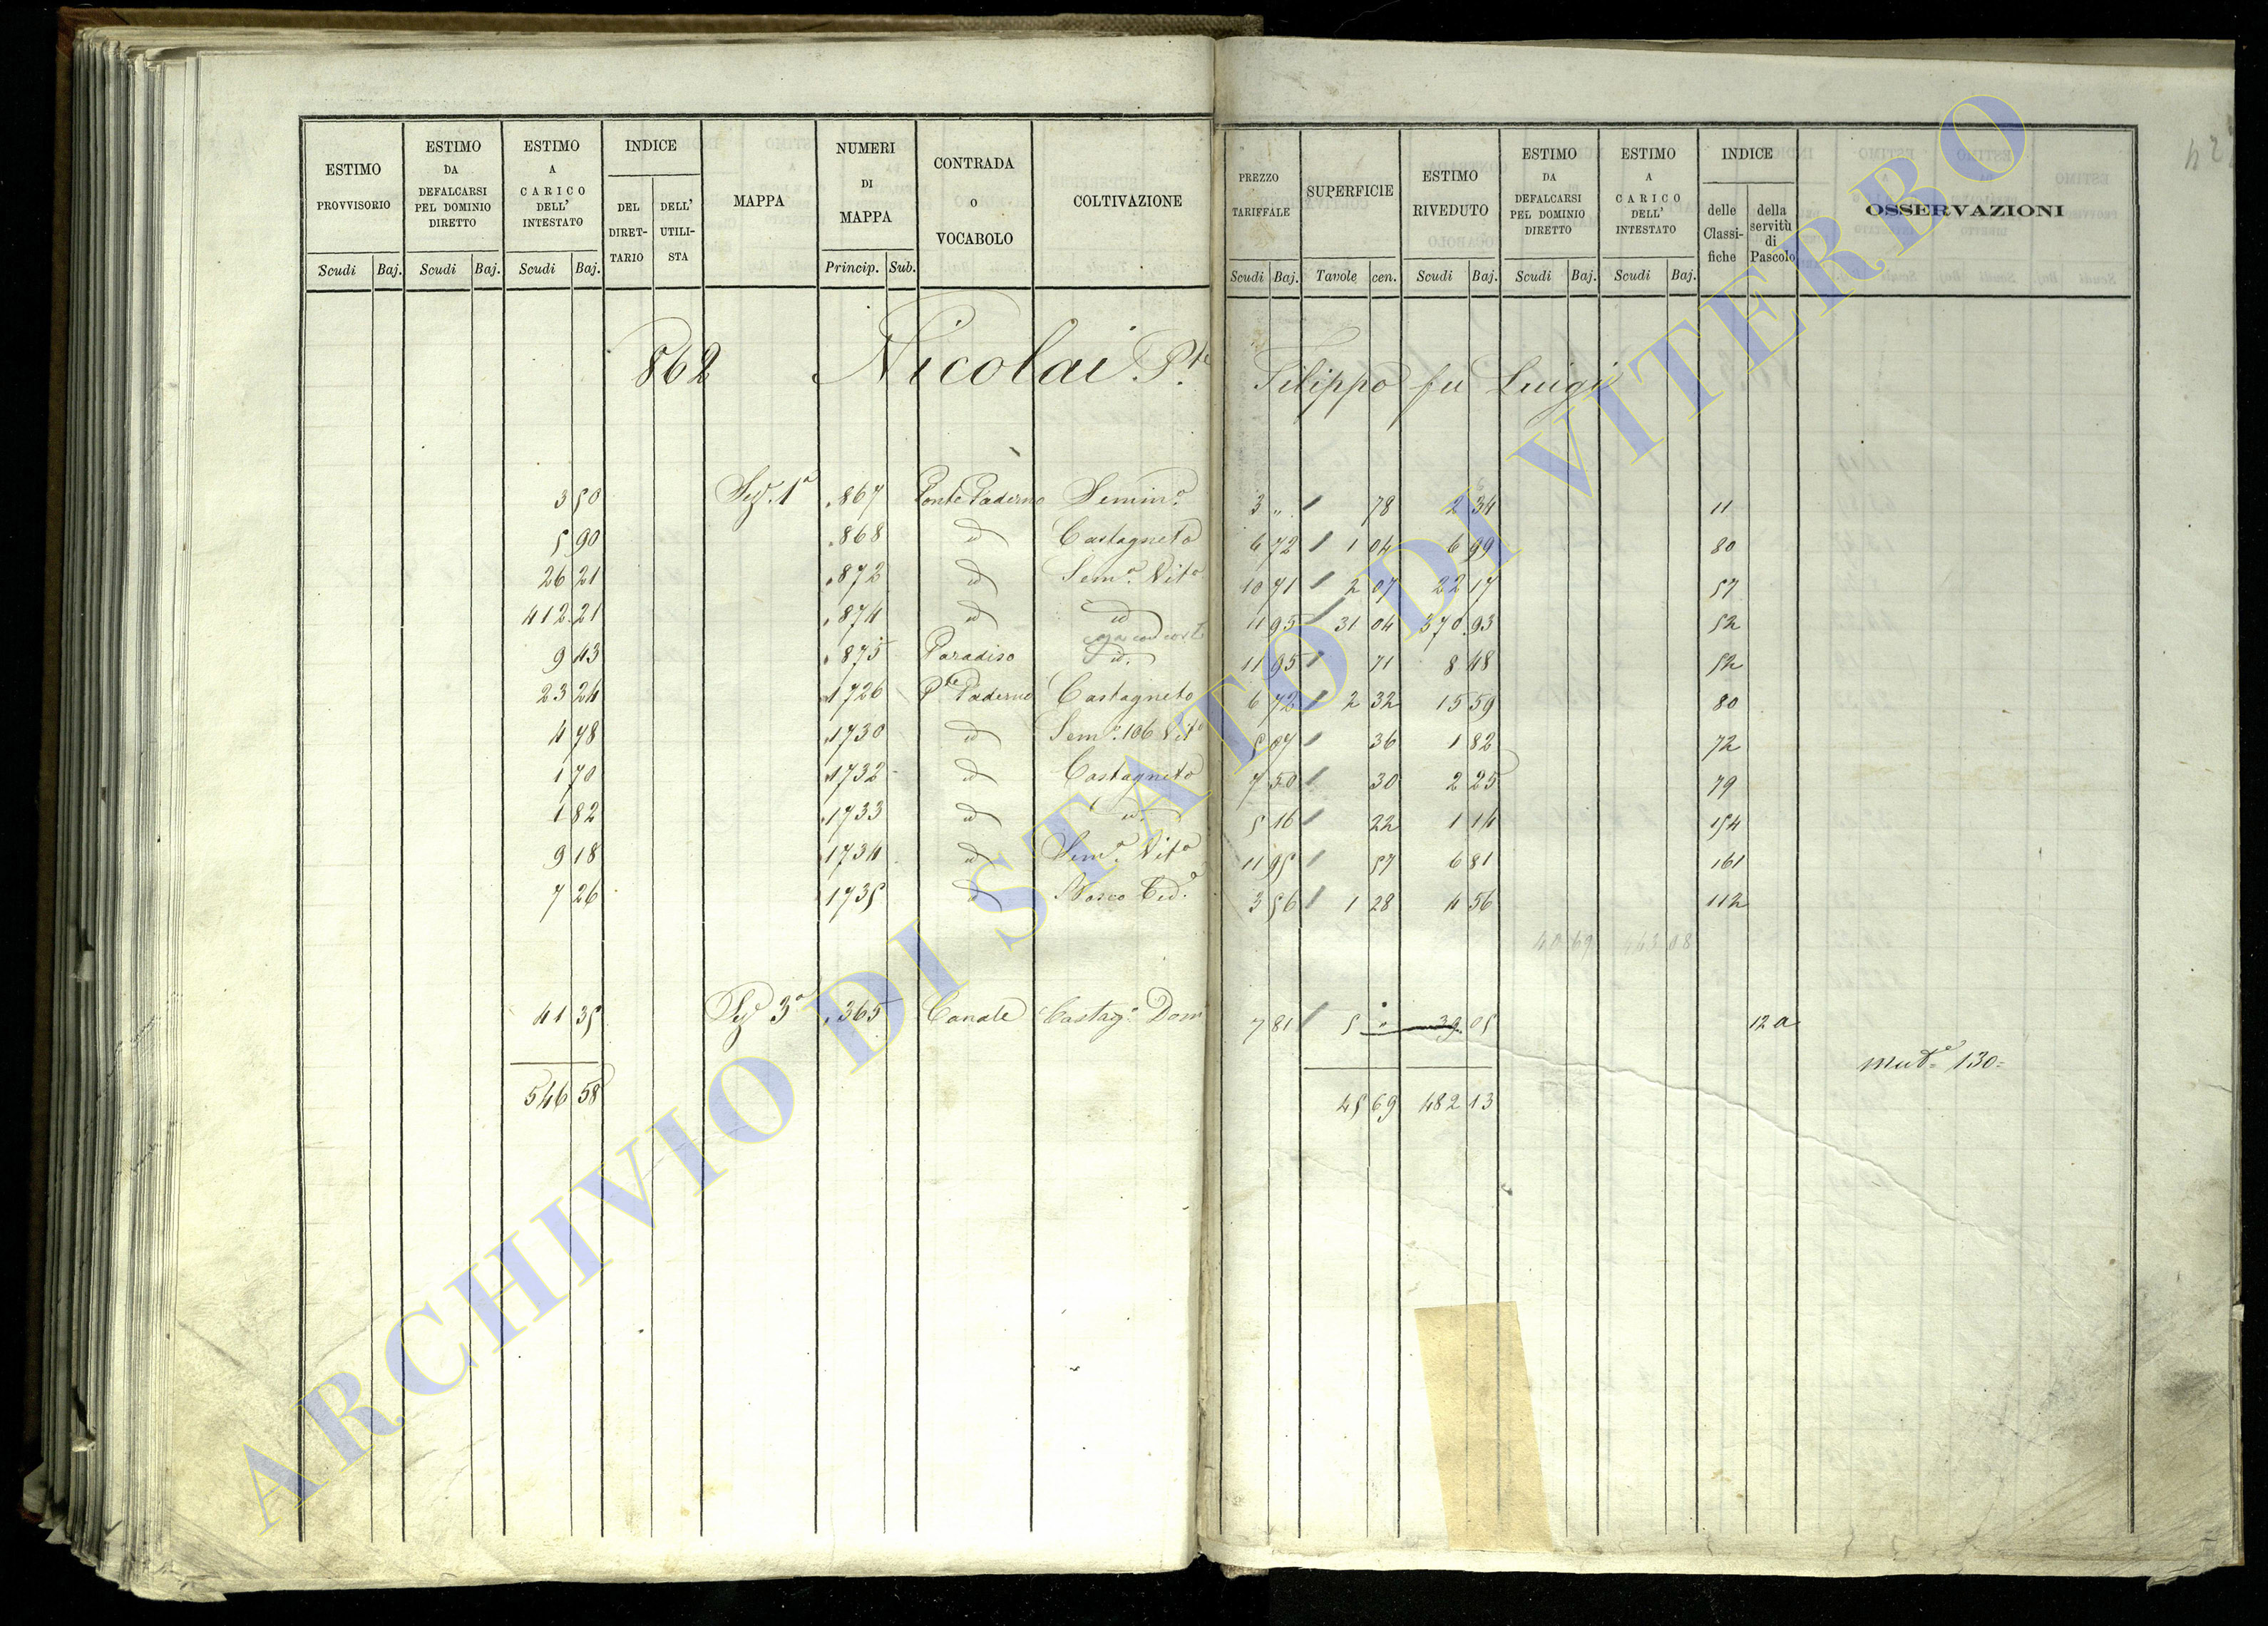 ESTIMO PROVVISORIO | ESTIMO DA DEFALCARSI PEL DOMINIO DIRETTO | ESTIMO A CARICO DELL' INTESTATO | INDICE DEL DIRET-TARIO | DELL' UTILI-STA | MAPPA | NUMERI DI MAPPA | CONTRADA O VOCABOLO | COLTIVAZIONE | PREZZO TARIFFALE | SUPERFICIE | ESTIMO RIVEDUTO | ESTIMO DA DEFALCARSI PEL DOMINIO DIRETTO | ESTIMO A CARICO DELL' INTESTATO | INDICE delle Classi-fiche | della servitù di Pascolo | OSSERVAZIONI
Scudi Baj. Scudi Baj. Scudi Baj. Princip. Sub. Scudi Baj. Tavole cen. Scudi Baj. Scudi Baj. Scudi Baj.
862 Nicolai P.te Filippo fu Luigi
3 50 Sez. 1ª 867 Ponte Paderno Semin.o 3 „ 78 2 34 11
5 90 868 id Castagneto 6 72 1 04 6 99 80
26 21 872 id Sem.o Vit.o 10 71 2 07 22 17 57
412 21 874 id id 11 95 31 04 370 93 52
9 43 875 Paradiso id. 11 95 71 8 48 52
23 24 1726 P.te Paderno Castagneto 6 72 2 32 15 59 80
4 78 1730 id Sem.o 106 Vit.o 5 07 36 1 82 72
1 70 1732 id Castagneto 7 50 30 2 25 79
1 82 1733 id id. 5 16 22 1 14 154
9 18 1734 id Sem.o Vit.o 11 95 57 6 81 161
7 26 1735 id Bosco Ced.o 3 56 1 28 4 56 112
40 69 443 08
41 35 Sez 3ª 365 Canale Castag.o Dom 7 81 5 „ 39 05 12 a
mut.e 130=
546 58 45 69 482 13
ARCHIVIO DI STATO DI VITERBO